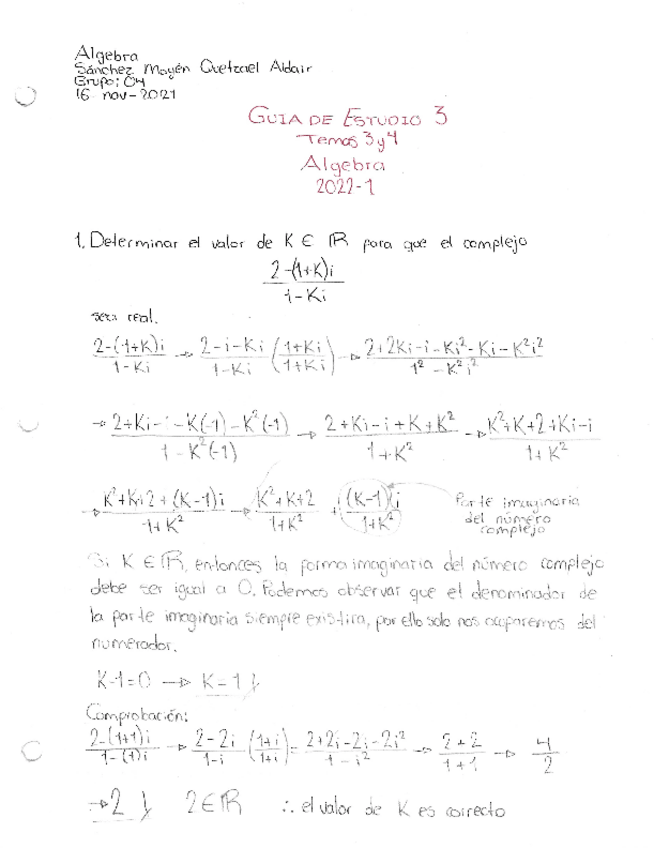 Algebra
Sánchez Mayén Quetzael Aldair
Grupo: 04
16 nov-2021
GUIA DE ESTUDIO 3
Temas 3 y 4
Algebra
2022-1
1. Determinar el valor de K ∈ ℝ para que el complejo
(2-(1+K)i)/(1-Ki)
sera real.
(2-(1+K)i)/(1-Ki) → (2-i-Ki)/(1-Ki) ((1+Ki)/(1+Ki)) → (2+2Ki-i-Ki²-Ki-K²i²)/(1²-K²i²)
→ (2+Ki-i-K(-1)-K²(-1))/(1-K²(-1)) → (2+Ki-i+K+K²)/(1+K²) → (K²+K+2+Ki-i)/(1+K²)
→ (K²+K+2+(K-1)i)/(1+K²) → (K²+K+2)/(1+K²) + ((K-1)i)/(1+K²) Parte imaginaria
del número
complejo
Si K ∈ ℝ, entonces la forma imaginaria del número complejo
debe ser igual a 0. Podemos observar que el denominador de
la parte imaginaria siempre existira, por ello solo nos ocuparemos del
numerador.
K-1=0 → K=1
Comprobación:
(2-(1+1)i)/(1-(1)i) → (2-2i)/(1-i) ((1+i)/(1+i)) = (2+2i-2i-2i²)/(1-i²) → (2+2)/(1+1) → 4/2
→ 2 2∈ℝ ∴ el valor de K es correcto